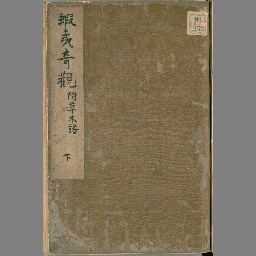 蝦夷奇觀附草木譜 下